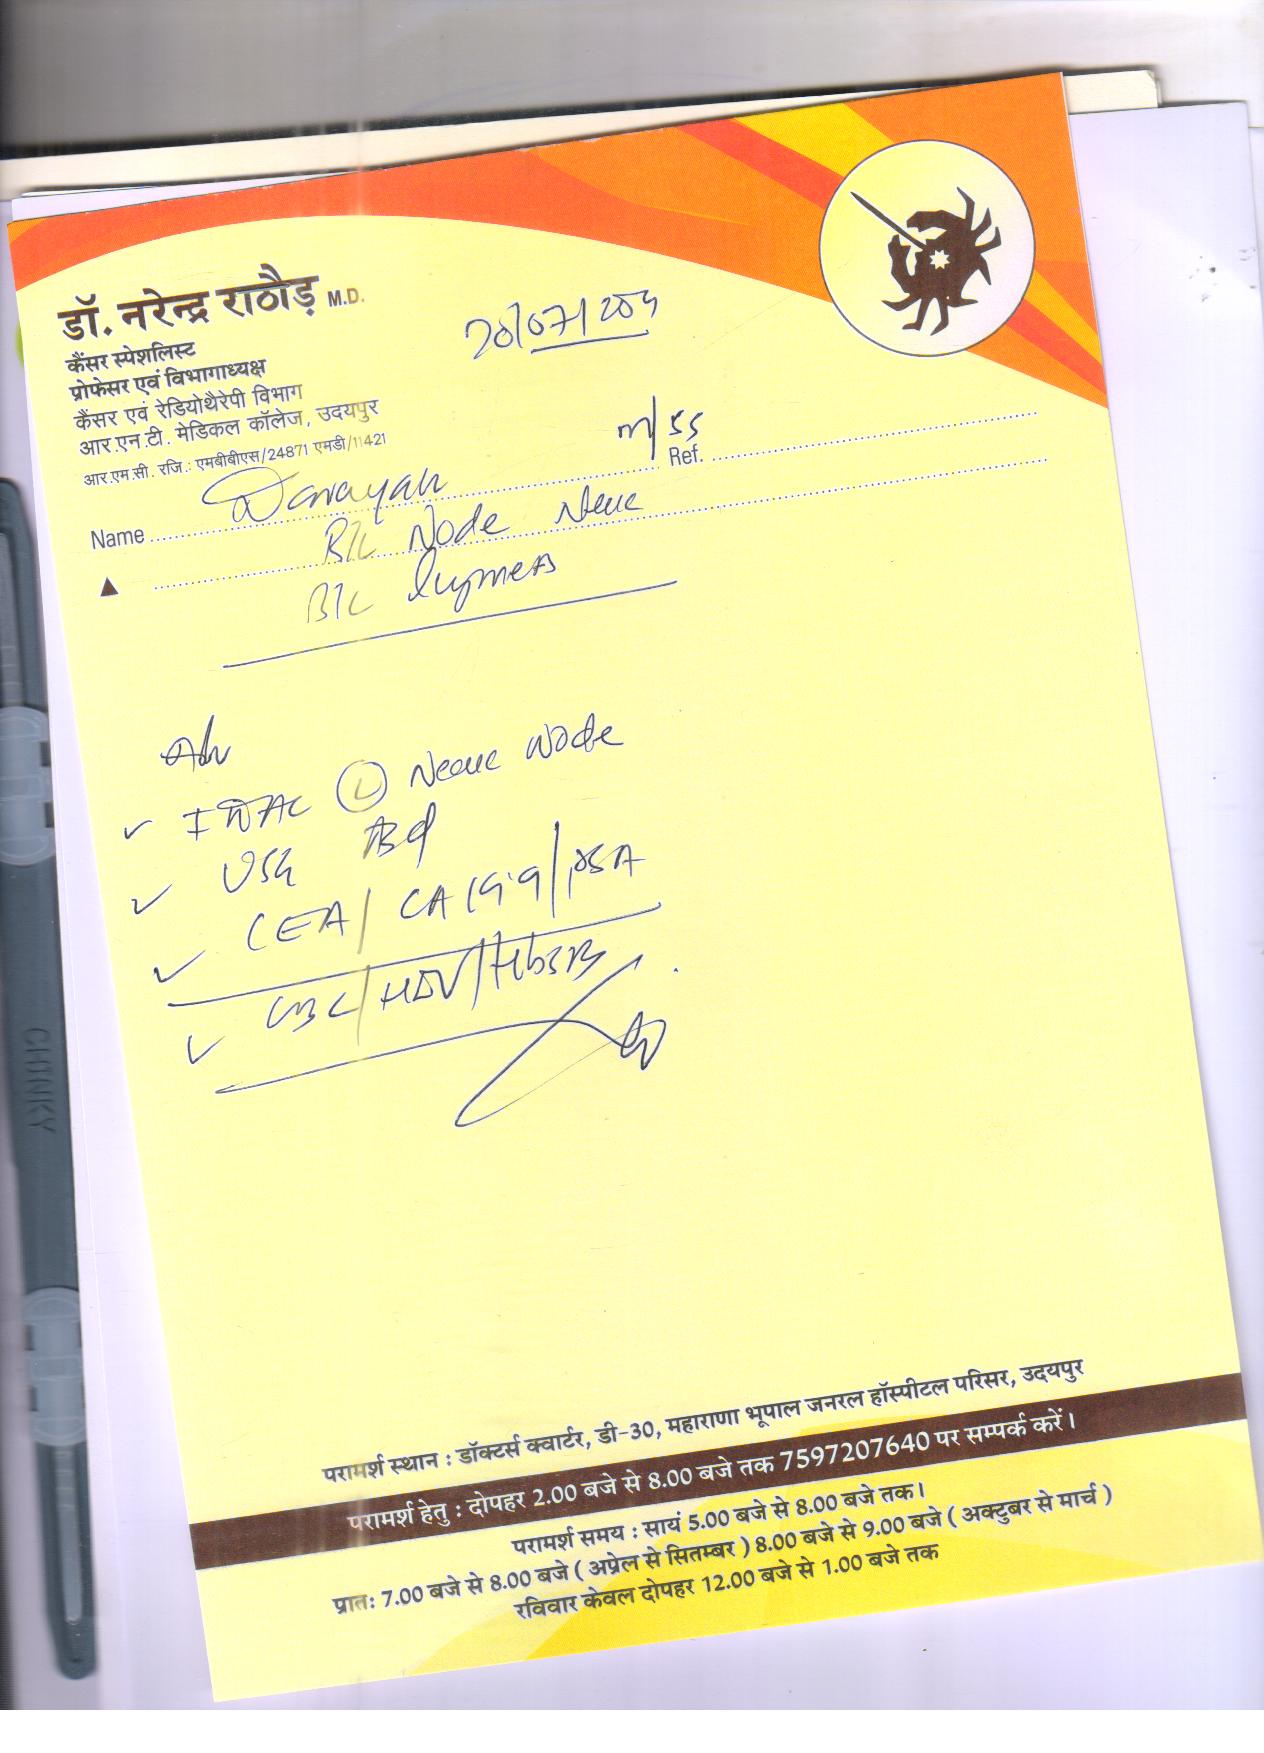 डॉ. नरेन्द्र राठौड़ M.D.
कैंसर स्पेशलिस्ट
प्रोफेसर एवं विभागाध्यक्ष
कैंसर एवं रेडियोथैरेपी विभाग
आर.एन.टी. मेडिकल कॉलेज, उदयपुर
आर.एम.सी. रजि.: एमबीबीएस/24871 एमडी/11421
20/07/
m/55
Name
Ref.
B/L Node Neck
B/L
Adv
L Neck Node
USG Abd
CEA / CA 19.9 / PSA
CBC / / HbsAg
CHINKY
परामर्श स्थान : डॉक्टर्स क्वार्टर, डी-30, महाराणा भूपाल जनरल हॉस्पीटल परिसर, उदयपुर
परामर्श हेतु : दोपहर 2.00 बजे से 8.00 बजे तक 7597207640 पर सम्पर्क करें।
परामर्श समय : सायं 5.00 बजे से 8.00 बजे तक।
प्रातः 7.00 बजे से 8.00 बजे ( अप्रेल से सितम्बर ) 8.00 बजे से 9.00 बजे ( अक्टुबर से मार्च )
रविवार केवल दोपहर 12.00 बजे से 1.00 बजे तक